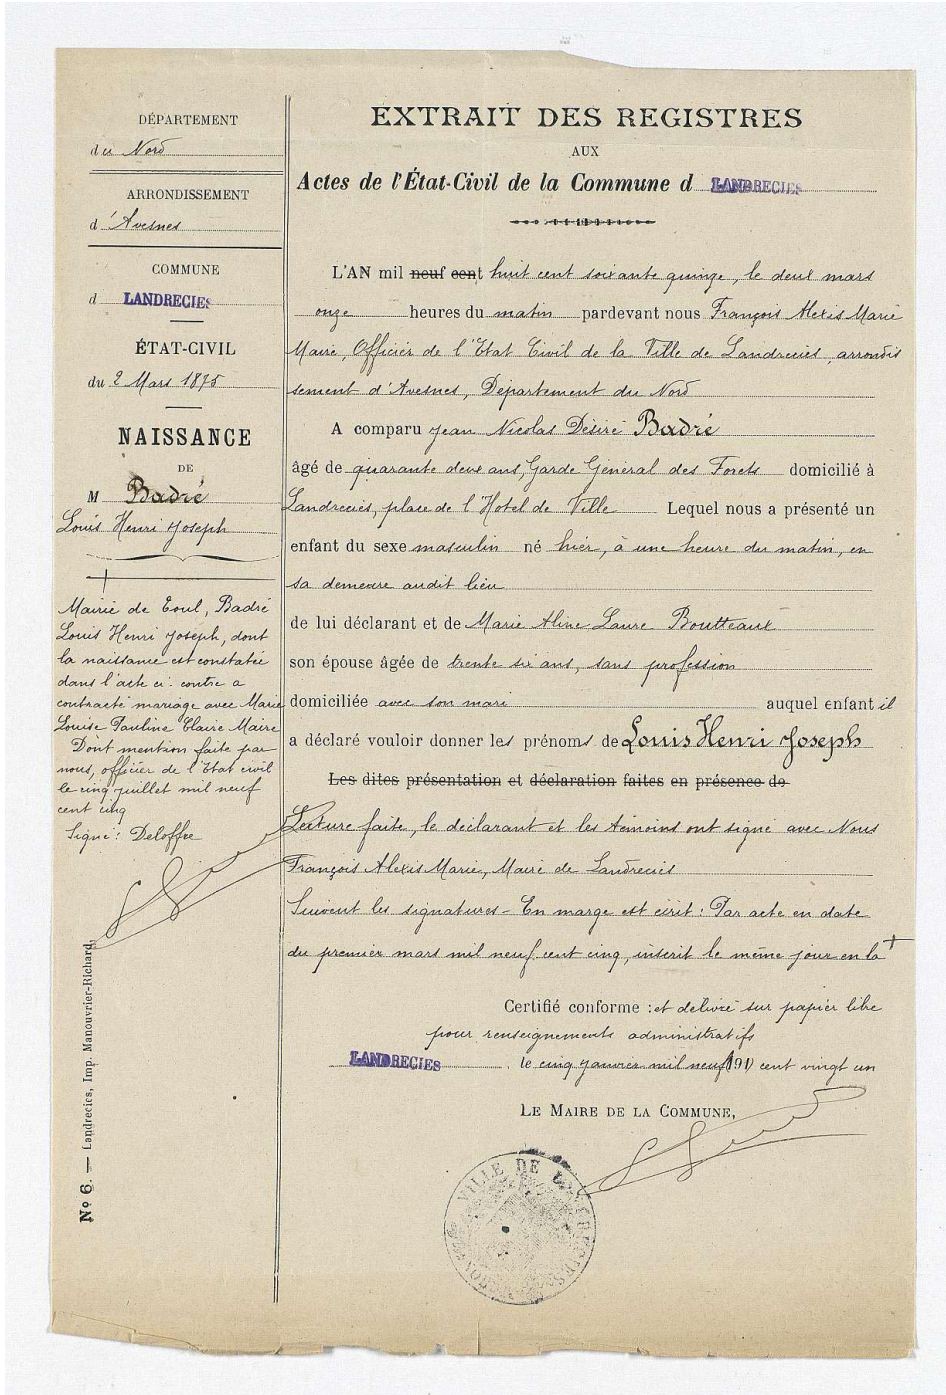 DÉPARTEMENT
du Nord
ARRONDISSEMENT
d'Avesnes
COMMUNE
d LANDRECIES
ÉTAT-CIVIL
du 2 Mars 1875
NAISSANCE
DE
M Badré
Louis Henri Joseph
Mairie de Toul, Badré
Louis Henri Joseph, dont
la naissance est constatée
dans l'acte ci-contre a
contracté mariage avec Marie
Louise Pauline Claire Maire
Dont mention faite par
nous, officier de l'Etat civil
le cinq juillet mil neuf
cent cinq
Signé: Deloffre
No 6. — Landrecies, Imp. Manouvrier-Richard.
EXTRAIT DES REGISTRES
AUX
Actes de l'État-Civil de la Commune d LANDRECIES
L'AN mil neuf cent huit cent soixante quinze, le deux mars
onze heures du matin pardevant nous François Alexis Marie
Maire, Officier de l'Etat Civil de la Ville de Landrecies, arrondis
sement d'Avesnes, Département du Nord
A comparu Jean Nicolas Désiré Badré
âgé de quarante deux ans, Garde Général des Forets domicilié à
Landrecies, place de l'Hotel de Ville Lequel nous a présenté un
enfant du sexe masculin né hier, à une heure du matin, en
sa demeure audit lieu
de lui déclarant et de Marie Aline Laure Boutteaux
son épouse âgée de trente six ans, sans profession
domiciliée avec son mari auquel enfant il
a déclaré vouloir donner les prénoms de Louis Henri Joseph
Les dites présentation et déclaration faites en présence de
Lecture faite, le déclarant et les témoins ont signé avec Nous
François Alexis Marie, Maire de Landrecies
Suivent les signatures - En marge est écrit: Par acte en date
du premier mars mil neuf cent cinq, inscrit le même jour en la +
Certifié conforme : et délivré sur papier libre
pour renseignements administratifs
LANDRECIES, le cinq janvier mil neuf 191 cent vingt un
LE MAIRE DE LA COMMUNE,
VILLE DE LANDRECIES